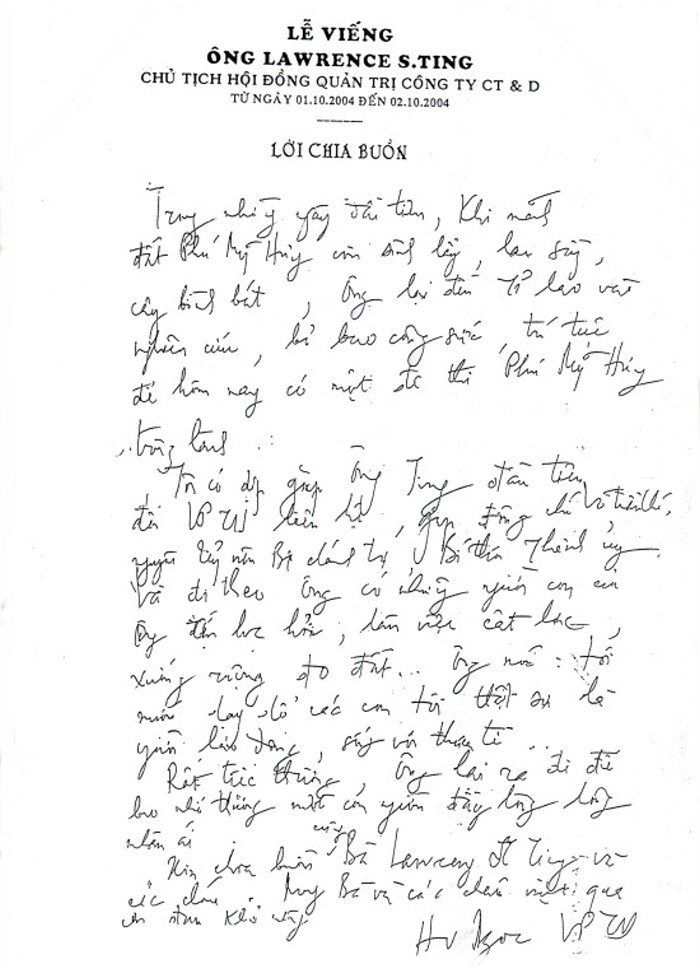 LỄ VIẾNG
ÔNG LAWRENCE S.TING
CHỦ TỊCH HỘI ĐỒNG QUẢN TRỊ CÔNG TY CT & D
TỪ NGÀY 01.10.2004 ĐẾN 02.10.2004
LỜI CHIA BUỒN
Trong những ngày đầu tiên, khi mảnh
đất Phú Mỹ Hưng còn sình lầy, lau sậy,
cây bình bát, Ông lại đến
nghiên cứu, bỏ bao công sức, trí tuệ
để hôm nay có một đô thị Phú Mỹ Hưng
Tôi có dịp gặp Ông Ting đầu tiên
đến VPTW liên hệ, gặp đồng chí
nguyên Ủy viên Bộ chính trị, Bí thư Thành ủy.
Và đi theo Ông có những người con
làm việc cật lực,
xuống ruộng đo đất... Ông nói: tôi
muốn dạy dỗ các con tôi thật sự là
người lao động, sống với thực tế...
Rất tiếc thương, Ông lại ra đi để
bao nhớ thương một con người đầy lòng
nhân ái
Xin chia buồn cùng Bà Lawrence S Ting và
các cháu. Mong Bà và các cháu qua
VPTW